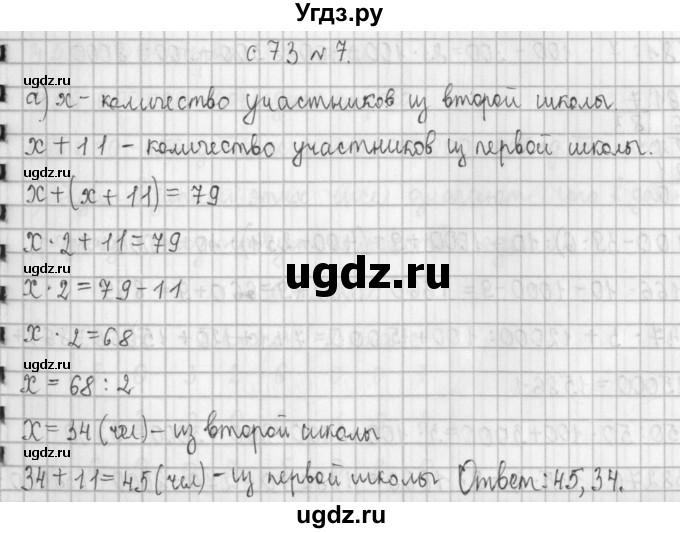 Угдз.ру
с 73 № 7.
ugdz.ru
а) х - количество участников из второй школы.
ugdz.ru
х + 11 - количество участников из первой школы.
ugdz.ru
х + (х + 11) = 79
ugdz.ru
х · 2 + 11 = 79
ugdz.ru
ugdz.ru
х · 2 = 79 - 11
х · 2 = 68
ugdz.ru
х = 68 : 2
ugdz.ru
х = 34 (чел) - из второй школы
34 + 11 = 45 (чел) - из первой школы Ответ: 45, 34.
ugdz.ru
ugdz.ru